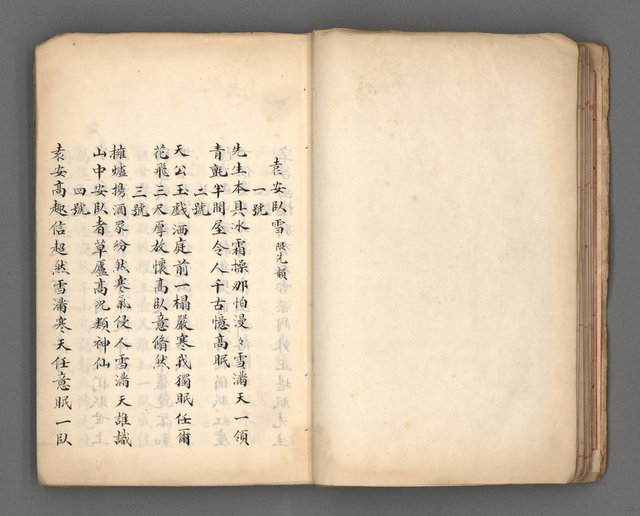 袁安臥雪 限先韻
一號
先生本具水霜操那怕漫々雪滿天一領
青氈半間屋令人千古憶高眠
二號
天公玉戲洒庭前一榻嚴寒我獨眠任爾
花飛三尺厚放懷高臥意翛然
三號
擁爐携酒尽紛然寒氣侵人雪滿天誰識
山中安臥者草廬高況類神仙
四號
袁安高趣信超然雪滿寒天任意眠一臥